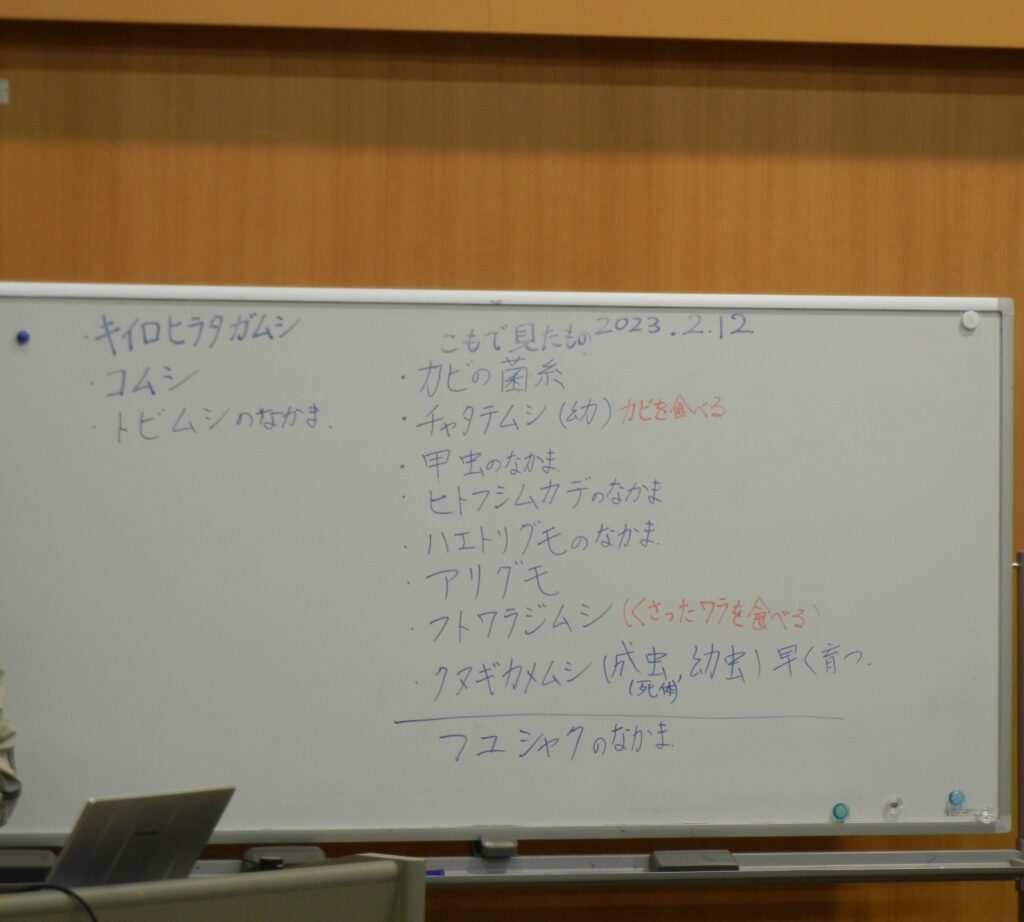 ・キイロヒラタガムシ
・コムシ
・トビムシのなかま.
こもで見たもの 2023.2.12
・カビの菌糸
・チャタテムシ(幼) カビを食べる
・甲虫のなかま
・ヒトフシムカデのなかま
・ハエトリグモのなかま.
・アリグモ
・フトワラジムシ (くさったワラを食べる)
・クヌギカメムシ (成虫, 幼虫) 早く育つ.
(死体)
フユシャクのなかま.